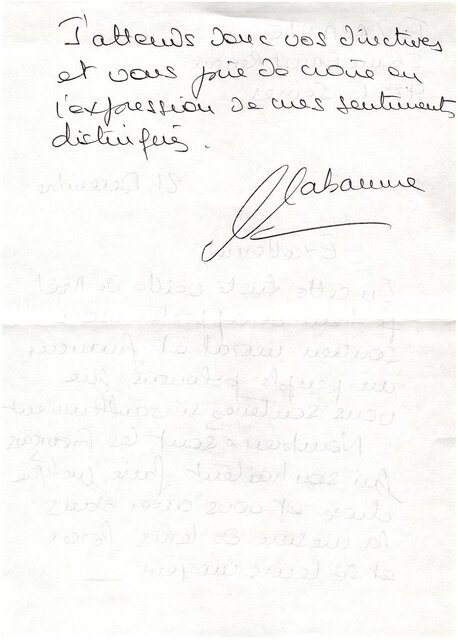 J'attends donc vos directives
et vous prie de croire en
l'expression de mes sentiments
distingués.
Labaume
21 Décembre
Excellence
En cette triste veille de Noël
soutien moral et financier
au peuple polonais que
vous soutenez si vaillamment
Nombreux sont les Français
qui souhaitent faire quelque
chose et vous aider dans
la mesure de leurs forces
et de leurs moyens